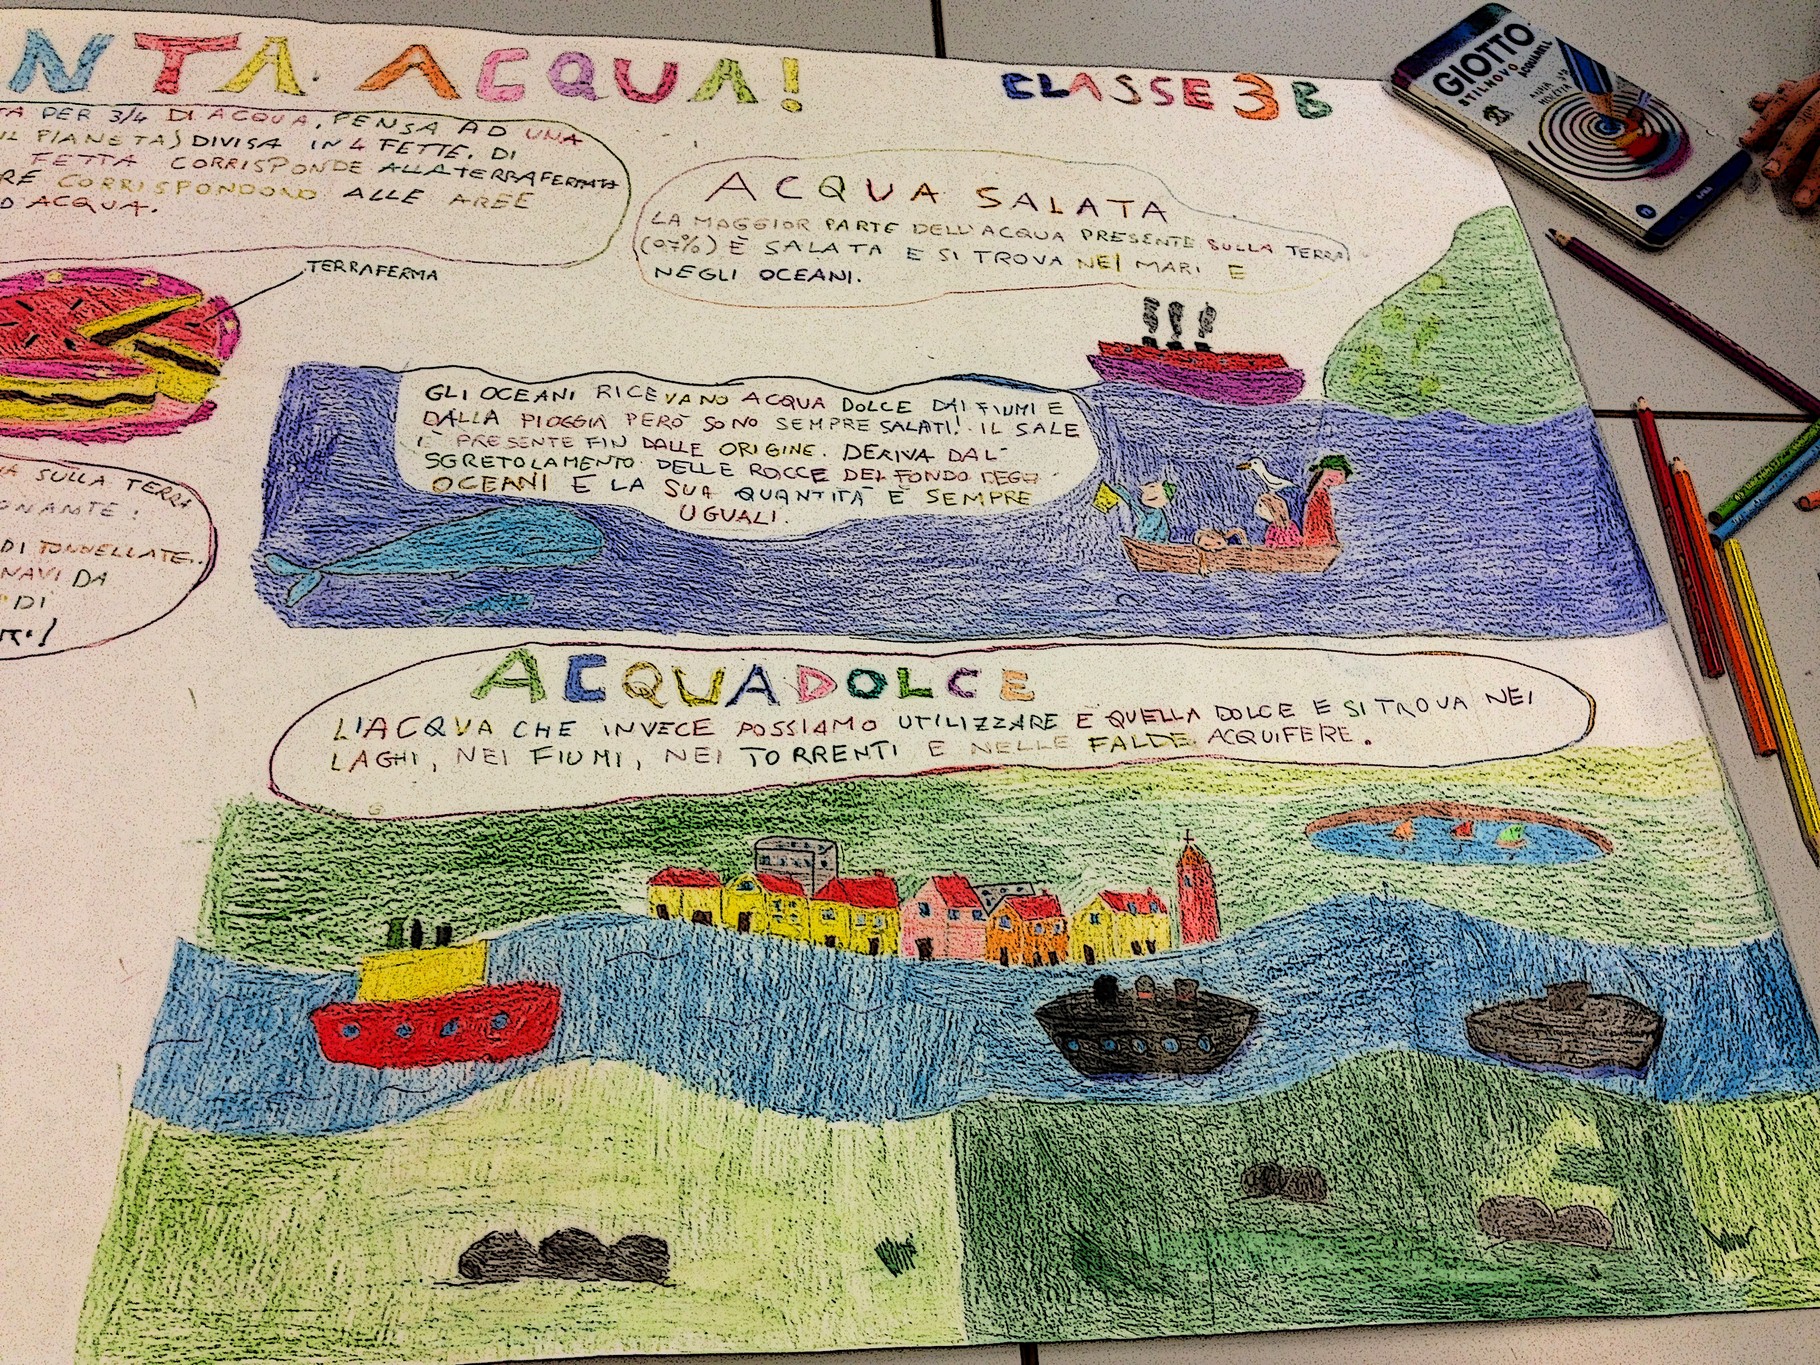 NTA ACQUA!
CLASSE 3B
GIOTTO
STILNOVO
ACQUARELL
PER 3/4 DI ACQUA, PENSA AD UNA
IL PIANETA) DIVISA IN 4 FETTE. DI
FETTA CORRISPONDE ALLA TERRAFERMA
RE CORRISPONDONO ALLE AREE
D'ACQUA.
TERRAFERMA
ACQUA SALATA
LA MAGGIOR PARTE DELL'ACQUA PRESENTE SULLA TERRA
(97%) È SALATA E SI TROVA NEI MARI E
NEGLI OCEANI.
GLI OCEANI RICEVANO ACQUA DOLCE DAI FIUMI E
DALLA PIOGGIA PERÒ SONO SEMPRE SALATI! IL SALE
È PRESENTE FIN DALLE ORIGINE. DERIVA DAL-
SGRETOLAMENTO DELLE ROCCE DEL FONDO DEGLI
OCEANI E LA SUA QUANTITÀ E' SEMPRE
UGUALI.
SULLA TERRA
GNANTE:
DI TONNELLATE..
NAVI DA
DI
ACQUADOLCE
L'ACQUA CHE INVECE POSSIAMO UTILIZZARE E QUELLA DOLCE E SI TROVA NEI
LAGHI, NEI FIUMI, NEI TORRENTI E NELLE FALDE ACQUIFERE.